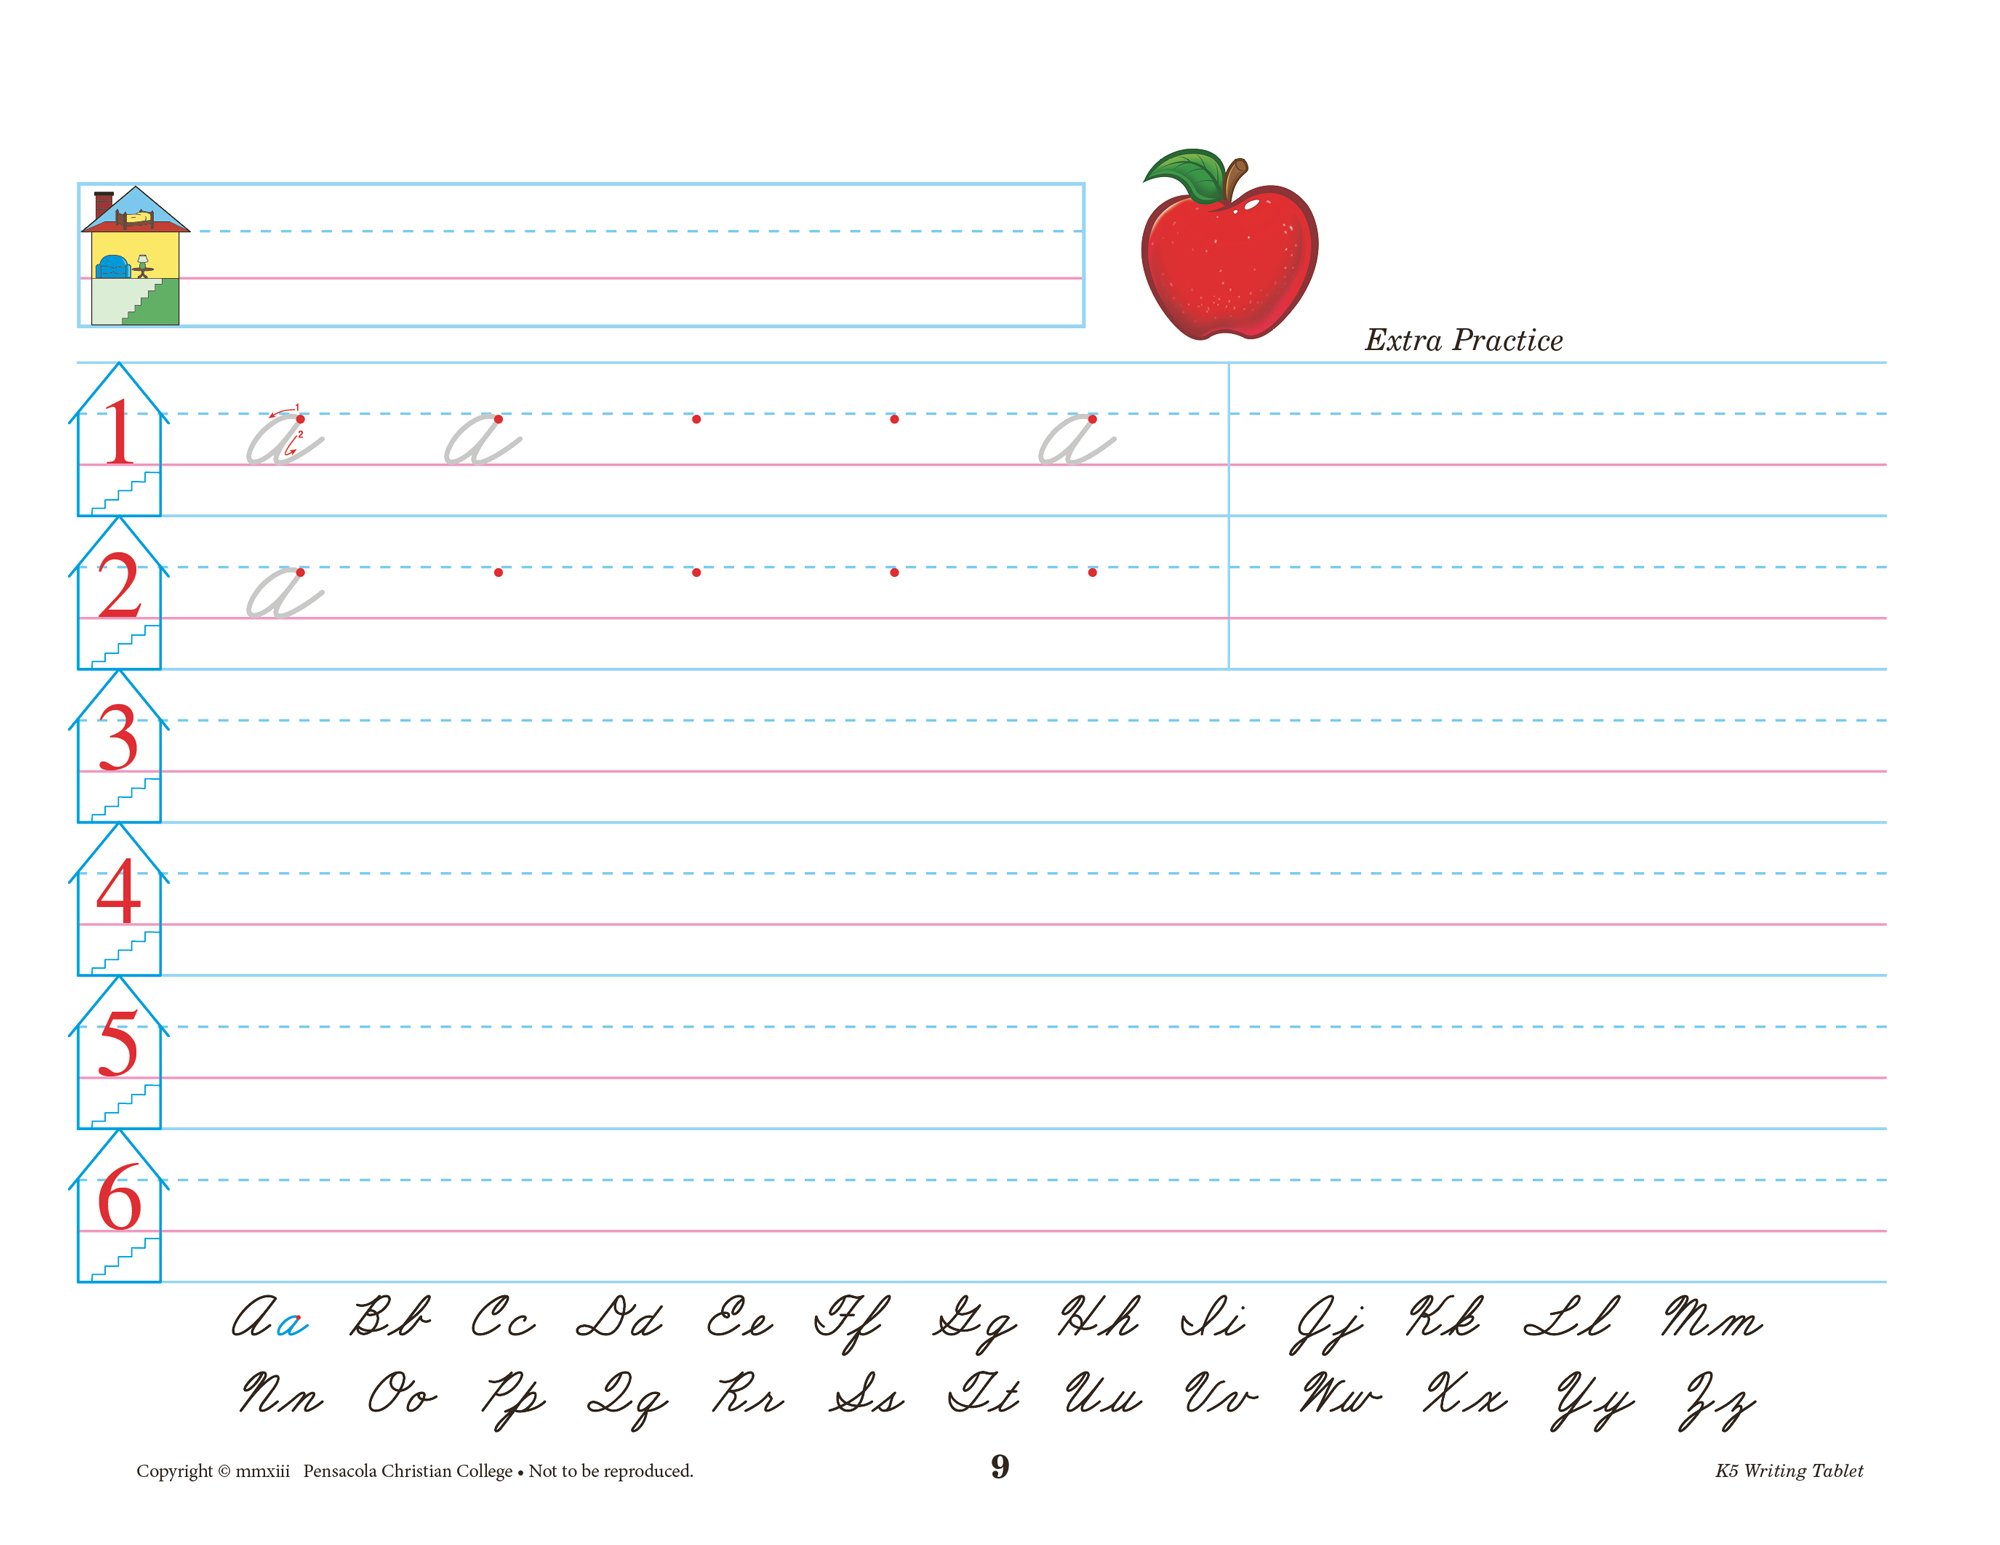 Extra Practice
1 a 1 2 a a
2 a
3
4
5
6
Aa Bb Cc Dd Ee Ff Gg Hh Ii Jj Kk Ll Mm
Nn Oo Pp Qq Rr Ss Tt Uu Vv Ww Xx Yy Zz
Copyright © mmxiii Pensacola Christian College • Not to be reproduced. 9 K5 Writing Tablet